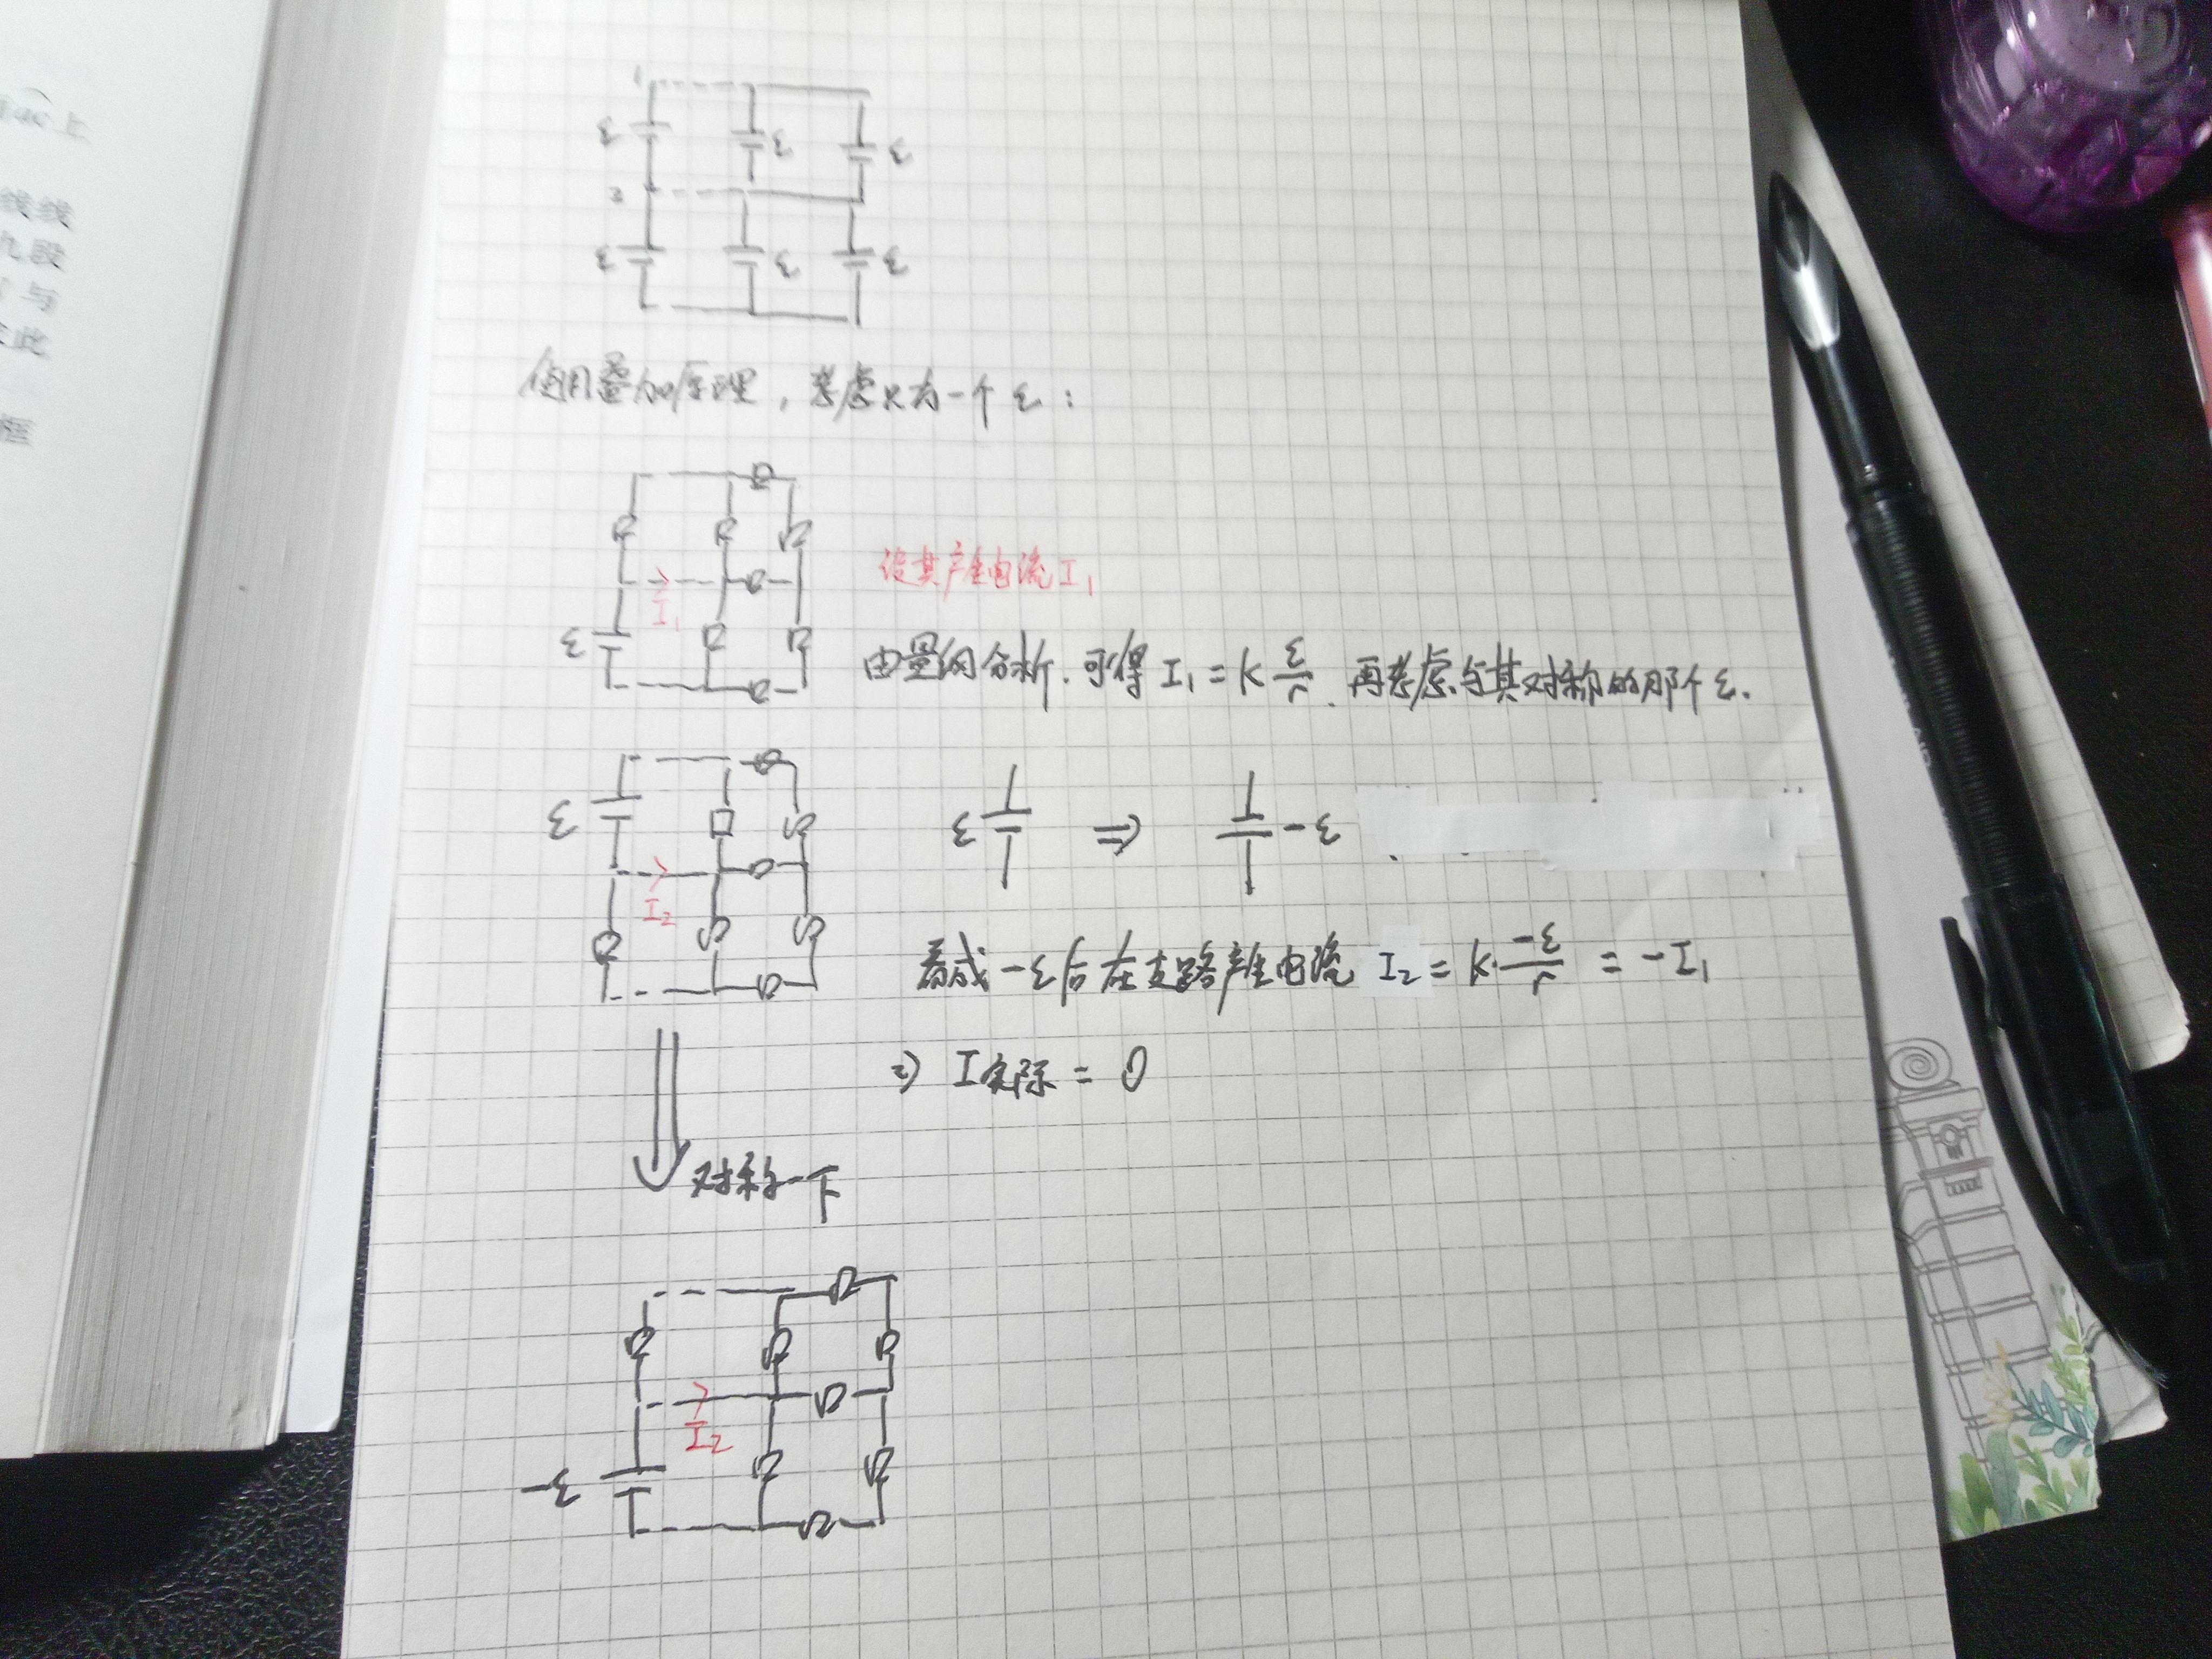 上
线线
九段
与
此
框
1
ε ε ε
2
ε ε ε
使用叠加原理，考虑只有一个ε：
设其产生电流I₁
I₁
ε
由量纲分析.可得 I₁ = k ε/r . 再考虑与其对称的那个ε.
ε
ε ⇒ -ε
I₂
看成-ε后在支路产生电流 I₂ = k·-ε/r = -I₁
⇒ I实际 = 0
对称一下
I₂
-ε